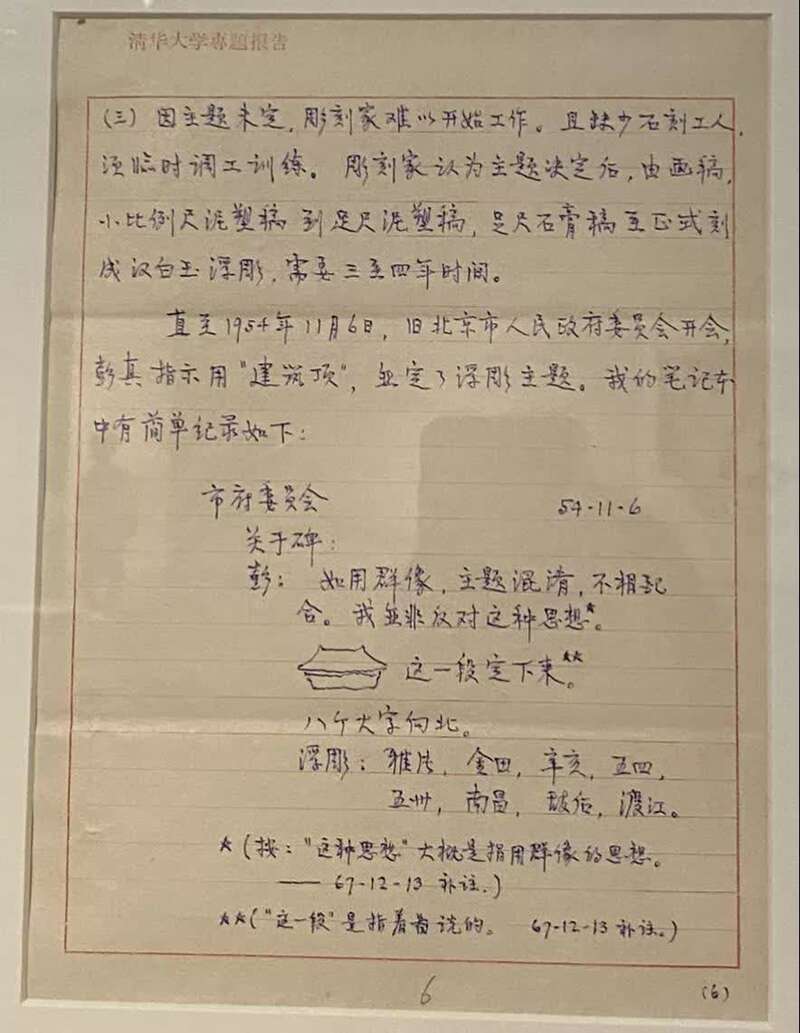 清华大学專題报告
(三) 因主题未定，彫刻家难以开始工作。且缺少石刻工人，
须临时调工训练。彫刻家认为主题决定后，由画稿，
小比例尺泥塑稿到足尺泥塑稿，足尺石膏稿至正式刻
成汉白玉浮彫，需要三至四年时间。
直至1954年11月6日，旧北京市人民政府委员会开会，
彭真指示用“建筑顶”，並定了浮彫主题。我的笔记本
中有简单纪录如下：
市府委员会 54-11-6
关于碑：
彭：如用群像，主题混淆，不相配
合。我並非反对这种思想*。
这一段定下来**。
八个大字向北。
浮彫：雅片，金田，辛亥，五四，
五卅，南昌，敌后，渡江。
*(按：“这种思想”大概是指用群像的思想。
—— 67-12-13 补注.)
**(“这一段”是指着图说的。 67-12-13 补注。)
6 (6)